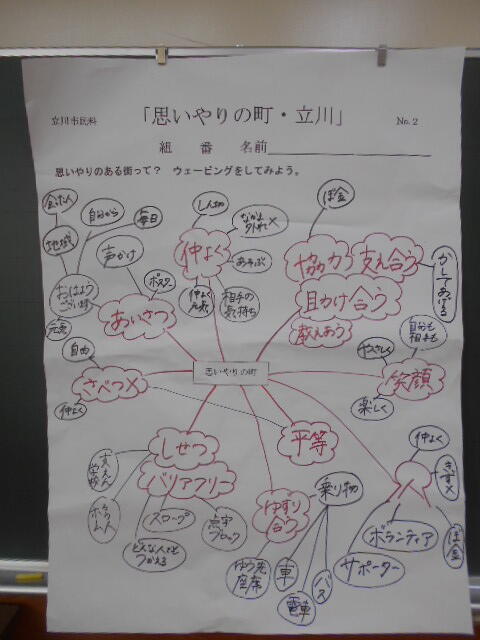 立川市民科
「思いやりの町・立川」
No.2
組 番 名前
思いやりのある街って? ウェービングをしてみよう。
会った人
自分から
毎日
地域
声かけ
おはようございます
ポスター
元気
あいさつ
しん切
なかま外れ×
仲よく
あそぶ
仲よく元気
相手の気持ち
ぼ金
協力
支え合う
助け合う
教えあう
かしてあげる
自分も相手も
やさしく
笑顔
楽しく
自由
さべつ×
仲よく
思いやりの町
平等
しせつ
バリアフリー
支えん学校
スロープ
点字ブロック
どんな人でもつかえる
ゆずり合う
乗り物
ゆう先座席
車
電車
バス
仲よく
きず×
ボランティア
サポーター
ぼ金